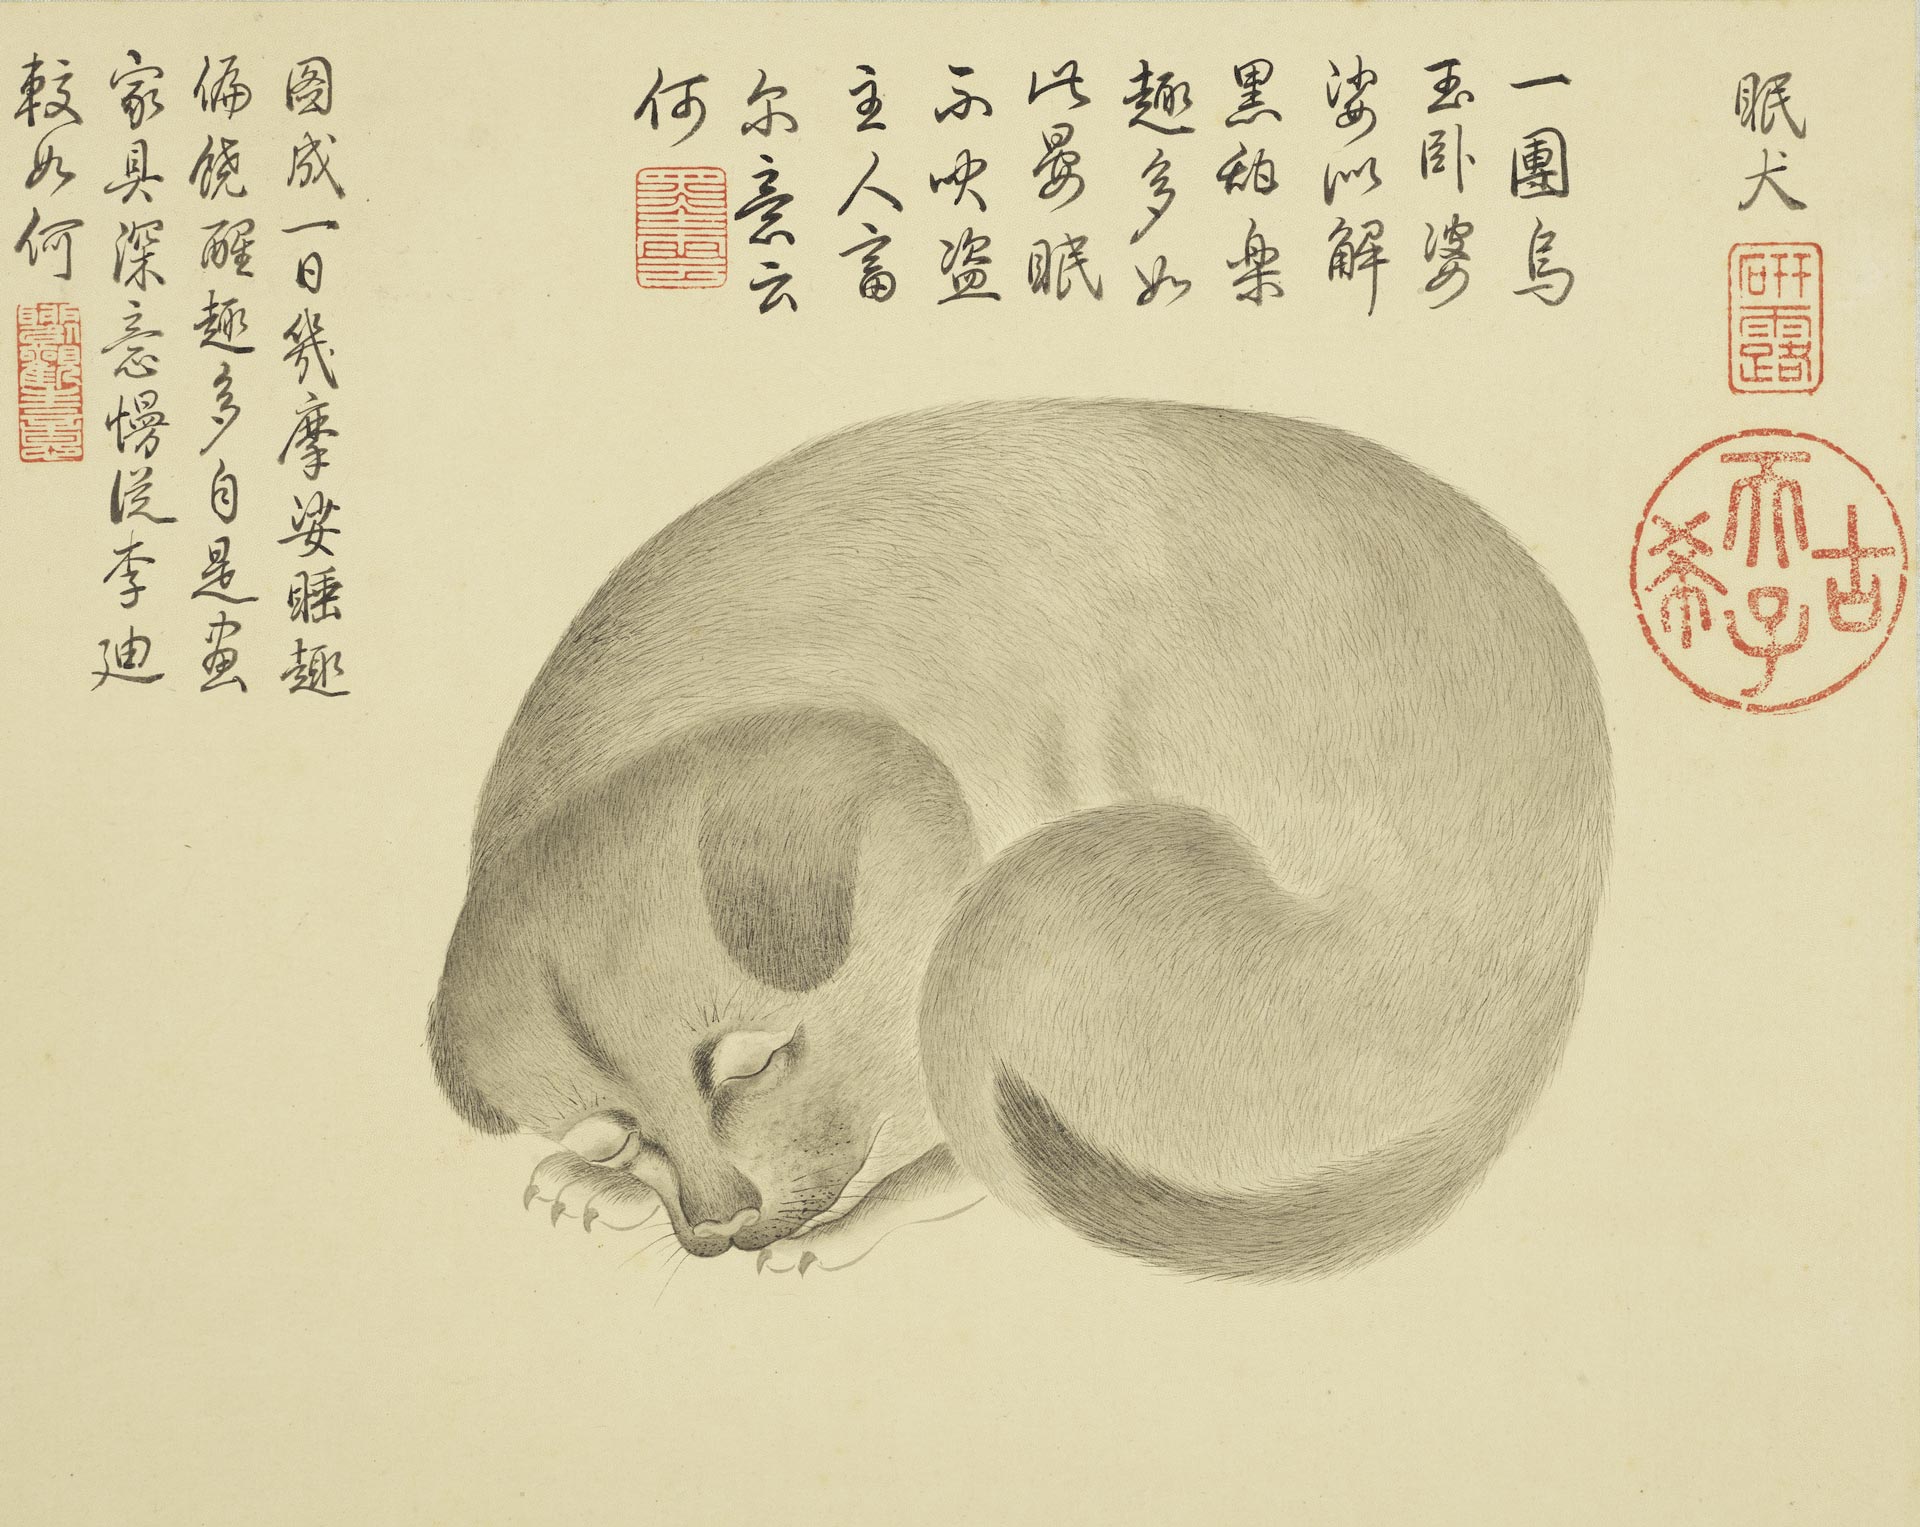 眠犬
研露
古希天子
一團烏
玉卧婆
娑似解
黑甜樂
趣多如
此晏眠
不吠盜
主人富
尔意云
何
圖成一日幾摩娑睡趣
偏饒醒趣多自是畫
家具深意慢從李迪
較如何